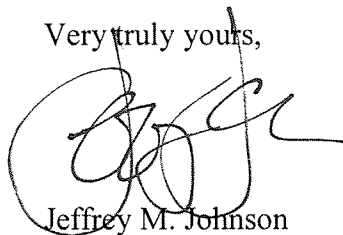 Very truly yours,
Jeffrey M. Johnson